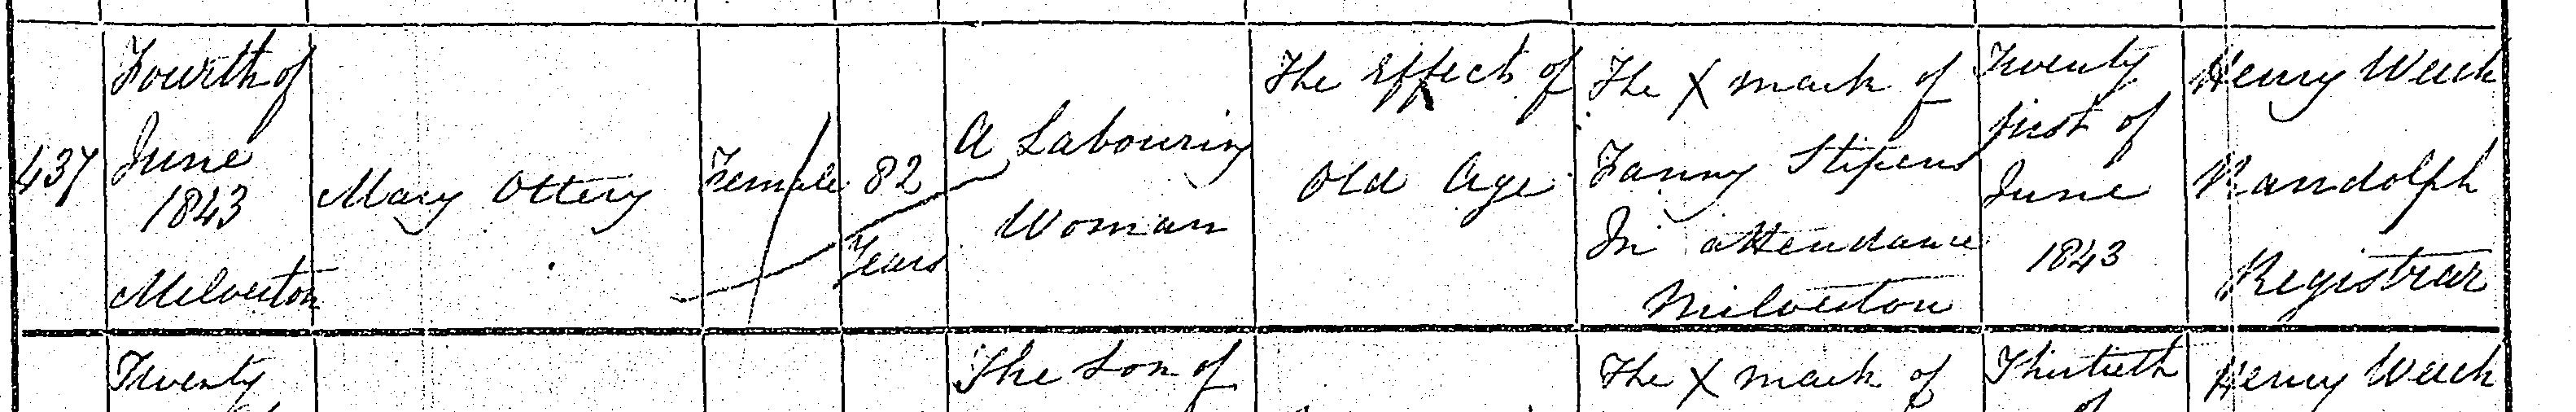 437
Fourth of
June
1843
Milverton
Mary Ottery
Female
82
Years
A Labouring
Woman
The Effects of
Old Age
The X mark of
Fanny Stipens
In attendance
Milverton
Twenty
first of
June
1843
Henry Welch
Randolph
Registrar
Twenty
The Son of
The X mark of
Thirtieth
of
Henry Welch